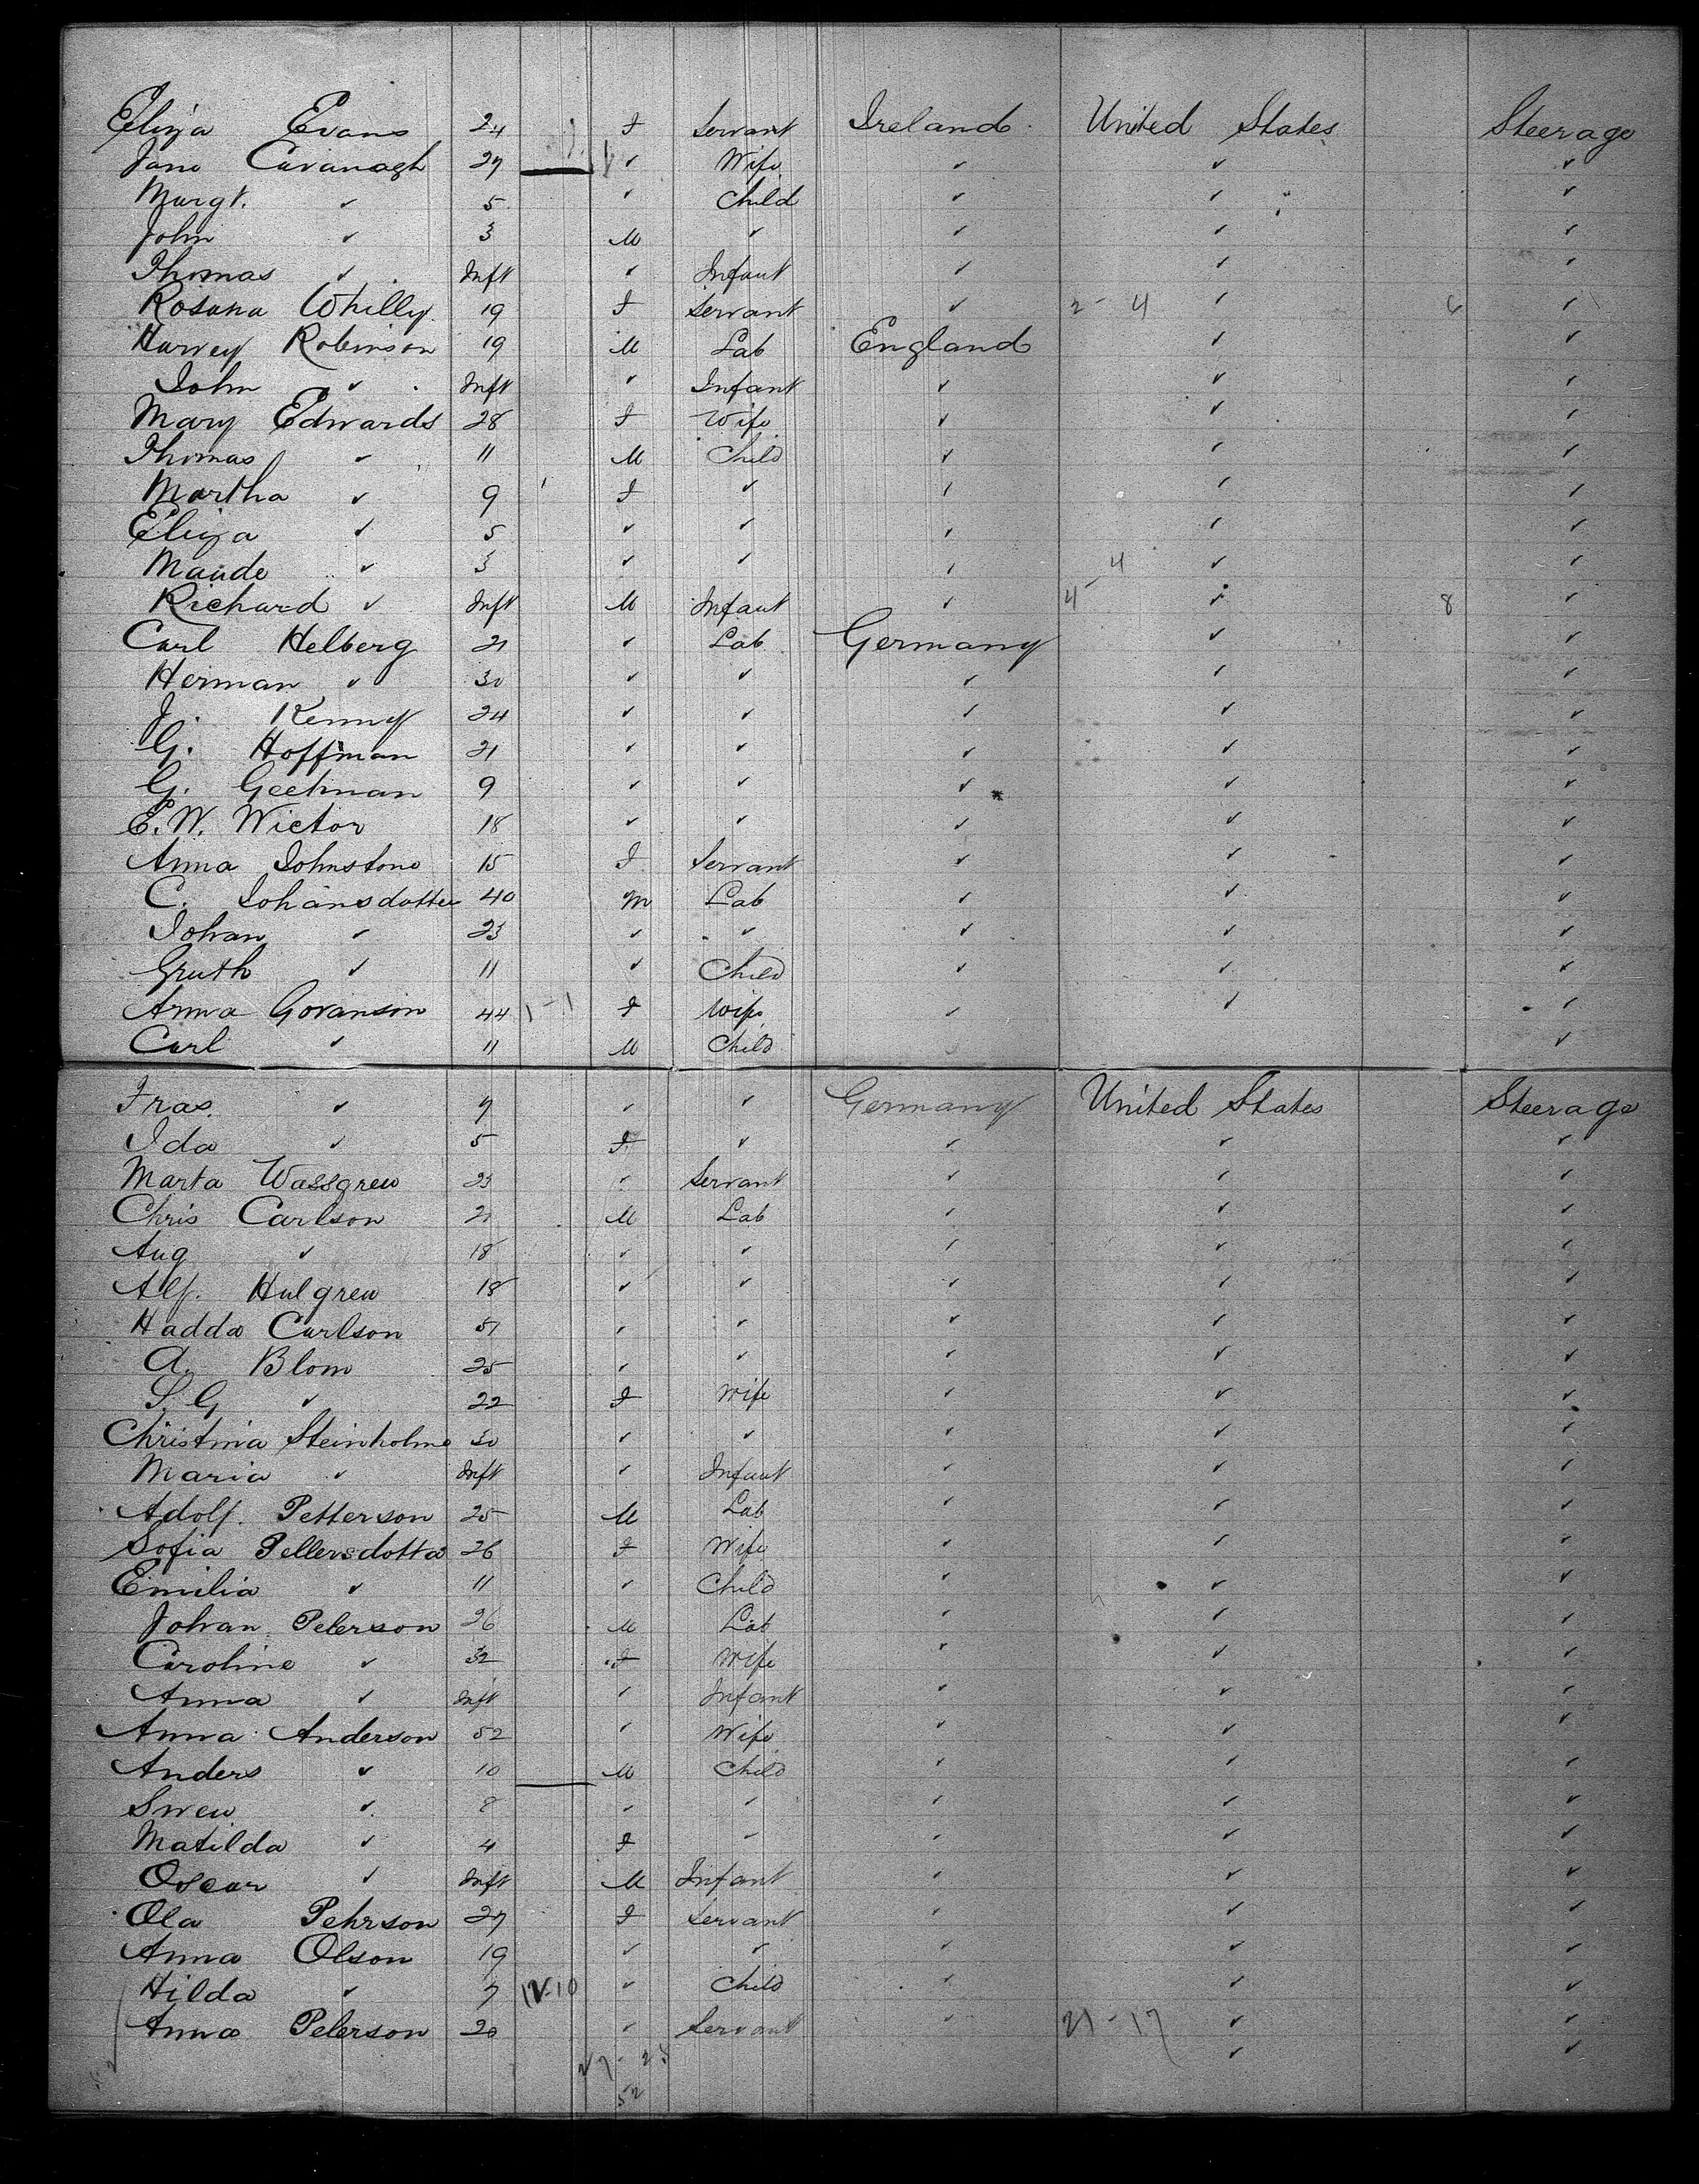 Eliza Evans 24 F Servant Ireland United States Steerage
Jane Cavanagh 27 ✓ Wife ✓ ✓ ✓
Margt. ✓ 5 ✓ Child ✓ ✓ ✓
John ✓ 3 M ✓ ✓ ✓ ✓
Thomas ✓ Inft ✓ Infant ✓ ✓ ✓
Rosana Whilly 19 F Servant ✓ 2-4 ✓ 6 ✓
Harvey Robinson 19 M Lab England ✓ ✓
John ✓ Inft ✓ Infant ✓ ✓ ✓
Mary Edwards 28 F Wife ✓ ✓ ✓
Thomas ✓ 11 M Child ✓ ✓ ✓
Martha ✓ 9 F ✓ ✓ ✓ ✓
Eliza ✓ 5 ✓ ✓ ✓ ✓ ✓
Maude ✓ 3 ✓ ✓ ✓ ✓ ✓
Richard ✓ Inft M Infant ✓ 4-4 ✓ 8 ✓
Carl Helberg 21 ✓ Lab Germany ✓ ✓
Herman ✓ 30 ✓ ✓ ✓ ✓ ✓
J. Kenny 24 ✓ ✓ ✓ ✓ ✓
G. Hoffman 21 ✓ ✓ ✓ ✓ ✓
G. Geetman 9 ✓ ✓ ✓ ✓ ✓
E. W. Wictor 18 ✓ ✓ ✓ ✓ ✓
Anna Johnstone 15 F Servant ✓ ✓ ✓
C. Johansdotter 40 M Lab ✓ ✓ ✓
Johan ✓ 23 ✓ ✓ ✓ ✓ ✓
Gruth ✓ 11 ✓ Child ✓ ✓ ✓
Anna Goranson 44 1-1 F Wife ✓ ✓ ✓
Carl ✓ 11 M Child ✓
Fras. ✓ 7 ✓ ✓ Germany United States Steerage
Ida ✓ 5 F ✓ ✓ ✓ ✓
Marta Wassgren 23 ✓ Servant ✓ ✓ ✓
Chris Carlson 21 M Lab ✓ ✓ ✓
Aug ✓ 18 ✓ ✓ ✓ ✓ ✓
Alf. Hulgren 18 ✓ ✓ ✓ ✓ ✓
Hadda Carlson 51 ✓ ✓ ✓ ✓ ✓
A. Blom 25 ✓ ✓ ✓ ✓ ✓
S. G ✓ 22 F Wife ✓ ✓ ✓
Christina Steinholme 30 ✓ ✓ ✓ ✓ ✓
Maria ✓ Inft ✓ Infant ✓ ✓ ✓
Adolf. Petterson 25 M Lab ✓ ✓ ✓
Sofia Pettersdotta 26 F Wife ✓ ✓ ✓
Emilia ✓ 11 ✓ Child ✓ ✓ ✓
Johan Peterson 26 M Lab ✓ ✓ ✓
Caroline ✓ 32 F Wife ✓ ✓ ✓
Anna ✓ Inft ✓ Infant ✓ ✓ ✓
Anna Anderson 52 ✓ Wife ✓ ✓ ✓
Anders ✓ 10 M Child ✓ ✓ ✓
Swen ✓ 8 ✓ ✓ ✓ ✓ ✓
Matilda ✓ 4 F ✓ ✓ ✓ ✓
Oscar ✓ Inft M Infant ✓ ✓ ✓
Ola Pehrson 27 F Servant ✓ ✓ ✓
Anna Olson 19 ✓ ✓ ✓ ✓ ✓
Hilda ✓ 7 12-10 ✓ Child ✓ ✓ ✓
Anna Peterson 20 ✓ Servant ✓ 21-17 ✓ ✓
✓ ✓
52